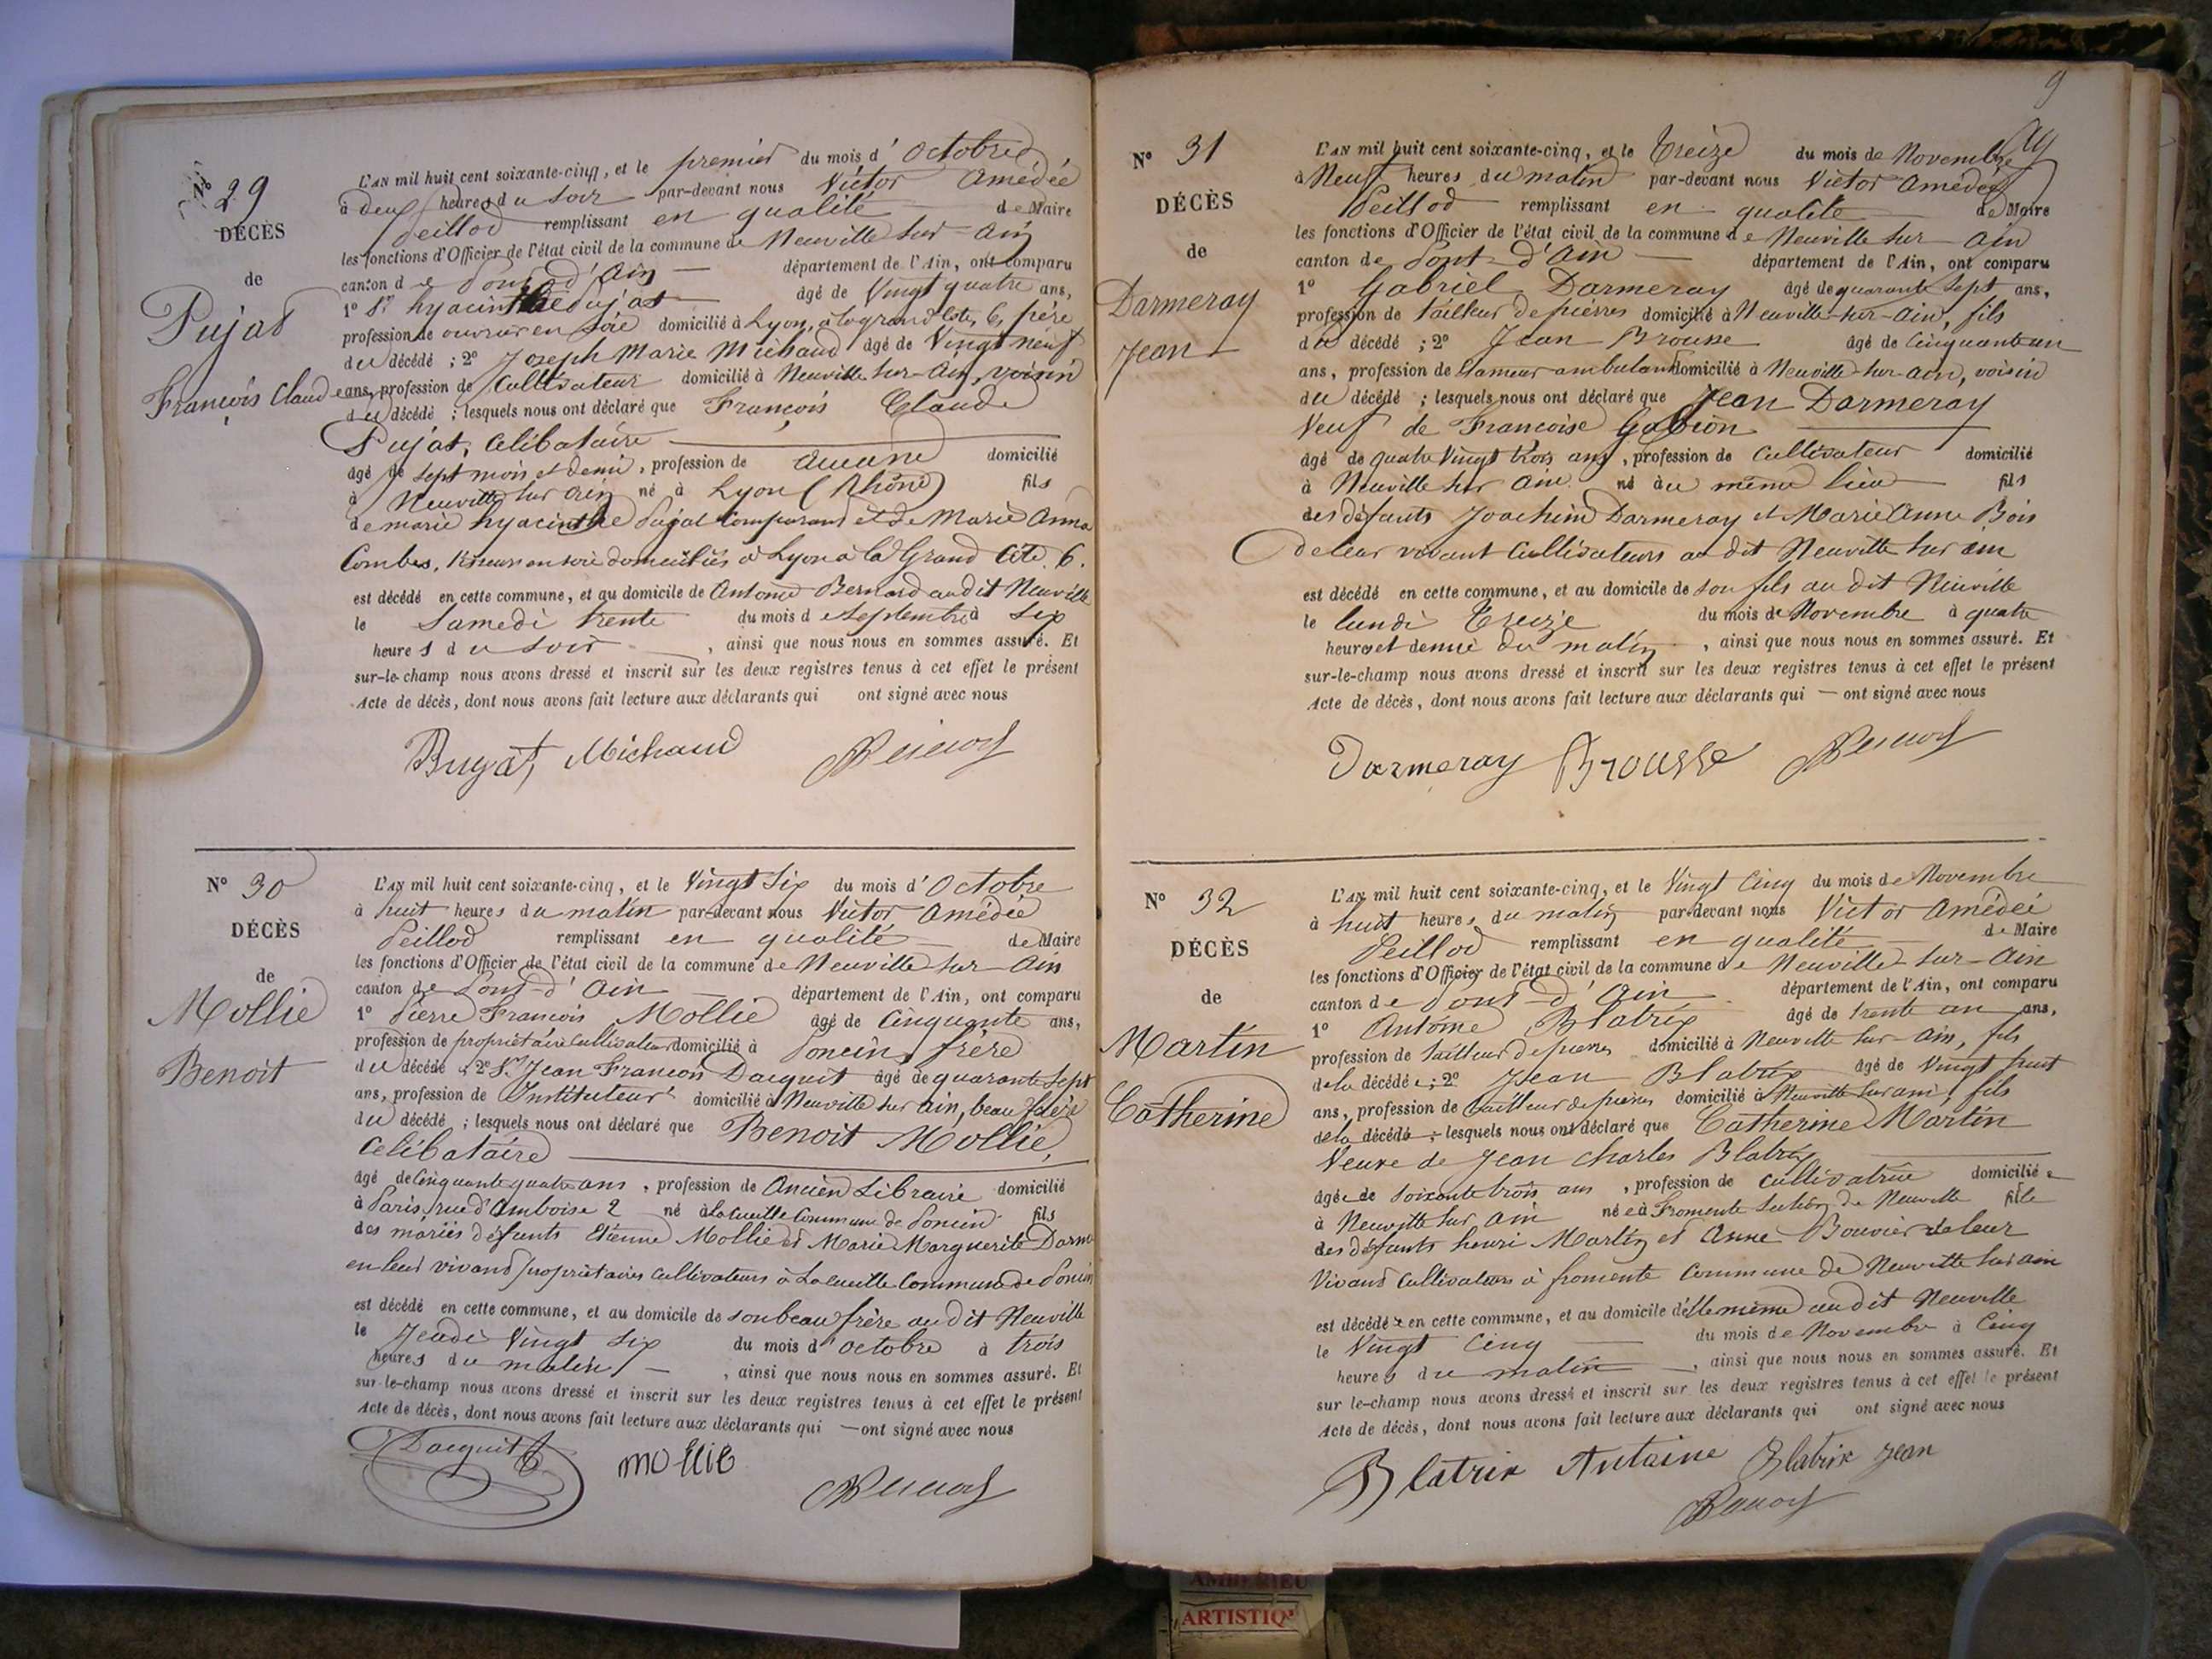 N° 29
DÉCÈS
de
Pujat
François Claude
L'AN mil huit cent soixante-cinq, et le premier du mois d'Octobre
à deux heures du soir par-devant nous Victor Amédée
Peillod remplissant en qualité de Maire
les fonctions d'Officier de l'état civil de la commune de Neuville sur Ain
canton de Pont d'Ain département de l'Ain, ont comparu
1° Sr hyacinthe Pujat âgé de Vingt quatre ans,
profession de ouvrier en soie domicilié à Lyon, à la grand Côte, 6, père
du décédé ; 2° Joseph Marie Michaud âgé de Vingt neuf
ans, profession de Cultivateur domicilié à Neuville sur Ain, voisin
du décédé ; lesquels nous ont déclaré que François Claude
Pujat, célibataire
âgé de sept mois et demi, profession de aucune domicilié
à Neuville sur ain né à Lyon (Rhône) fils
de marie hyacinthe Pujat Comparant et de Marie Anna
Combes, domiciliés à Lyon à la Grand Côte, 6.
est décédé en cette commune, et au domicile de Antoine Bernard au dit Neuville
le Samedi trente du mois de Septembre à Six
heures du soir, ainsi que nous nous en sommes assuré. Et
sur-le-champ nous avons dressé et inscrit sur les deux registres tenus à cet effet le présent
Acte de décès, dont nous avons fait lecture aux déclarants qui ont signé avec nous
Bugat, Michaud
N° 30
DÉCÈS
de
Mollie
Benoit
L'AN mil huit cent soixante-cinq, et le Vingt Six du mois d'Octobre
à huit heures du matin par-devant nous Victor Amédée
Peillod remplissant en qualité de Maire
les fonctions d'Officier de l'état civil de la commune de Neuville sur Ain
canton de Pont d'Ain département de l'Ain, ont comparu
1° Pierre François Mollie âgé de Cinquante ans,
profession de propriétaire Cultivateur domicilié à Poncin, frère
du décédé ; 2° Sr Jean François Dacquit âgé de quarante Sept
ans, profession de Instituteur domicilié à Neuville sur ain, beau frère
du décédé ; lesquels nous ont déclaré que Benoit Mollie,
Célibataire
âgé de Cinquante quatre ans, profession de Ancien Libraire domicilié
à Paris, rue d'Amboise 2 né à la Cueille Commune de Poncin fils
des mariés défunts Etienne Mollie et Marie Marguerite
en leur vivant propriétaires Cultivateurs à La cueille Commune de Poncin
est décédé en cette commune, et au domicile de son beau frère au dit Neuville
le Jeudi Vingt Six du mois d'Octobre à trois
heures du matin, ainsi que nous nous en sommes assuré. Et
sur-le-champ nous avons dressé et inscrit sur les deux registres tenus à cet effet le présent
Acte de décès, dont nous avons fait lecture aux déclarants qui — ont signé avec nous
Dacquit mollie
9
N° 31
DÉCÈS
de
Darmeray
Jean
L'AN mil huit cent soixante-cinq, et le Treize du mois de Novembre
à Neuf heures du matin par-devant nous Victor Amédée
Peillod remplissant en qualité de Maire
les fonctions d'Officier de l'état civil de la commune de Neuville sur Ain
canton de Pont d'Ain département de l'Ain, ont comparu
1° Gabriel Darmeray âgé de quarante sept ans,
profession de tailleur de pierres domicilié à Neuville-sur-Ain, fils
du décédé ; 2° Jean Brousse âgé de Cinquante un
ans, profession de ambulant domicilié à Neuville-sur-ain, voisin
du décédé ; lesquels nous ont déclaré que Jean Darmeray
Veuf de Françoise
âgé de quatre Vingt trois ans, profession de Cultivateur domicilié
à Neuville sur Ain né au même lieu fils
des défunts Joachim Darmeray et Marie Anne Bois
de leur vivant Cultivateurs au dit Neuville sur ain
est décédé en cette commune, et au domicile de son fils au dit Neuville
le lundi Treize du mois de Novembre à quatre
heures et demie du matin, ainsi que nous nous en sommes assuré. Et
sur-le-champ nous avons dressé et inscrit sur les deux registres tenus à cet effet le présent
Acte de décès, dont nous avons fait lecture aux déclarants qui — ont signé avec nous
Darmeray Brousse
N° 32
DÉCÈS
de
Martin
Catherine
L'AN mil huit cent soixante-cinq, et le Vingt Cinq du mois de Novembre
à huit heures du matin par-devant nous Victor Amédée
Peillod remplissant en qualité de Maire
les fonctions d'Officier de l'état civil de la commune de Neuville-sur-Ain
canton de Pont-d'Ain département de l'Ain, ont comparu
1° Antoine Blatrix âgé de trente un ans,
profession de tailleur de pierres domicilié à Neuville sur-Ain, fils
de la décédée ; 2° Jean Blatrix âgé de Vingt huit
ans, profession de tailleur de pierres domicilié à Neuville sur ain, fils
de la décédé ; lesquels nous ont déclaré que Catherine Martin
Veuve de Jean Charles Blatrix
âgée de soixante trois ans, profession de cultivatrice domiciliée
à Neuville sur Ain née à Fromente Section de Neuville fille
des défunts henri Martin et Anne Bouvier de leur
Vivant Cultivateurs à fromente Commune de Neuville sur ain
est décédée en cette commune, et au domicile d'elle même au dit Neuville
le Vingt Cinq du mois de Novembre à Cinq
heures du matin, ainsi que nous nous en sommes assuré. Et
sur le-champ nous avons dressé et inscrit sur les deux registres tenus à cet effet le présent
Acte de décès, dont nous avons fait lecture aux déclarants qui ont signé avec nous
Blatrix Antoine Blatrix Jean
AMBERIEU
ARTISTIQ